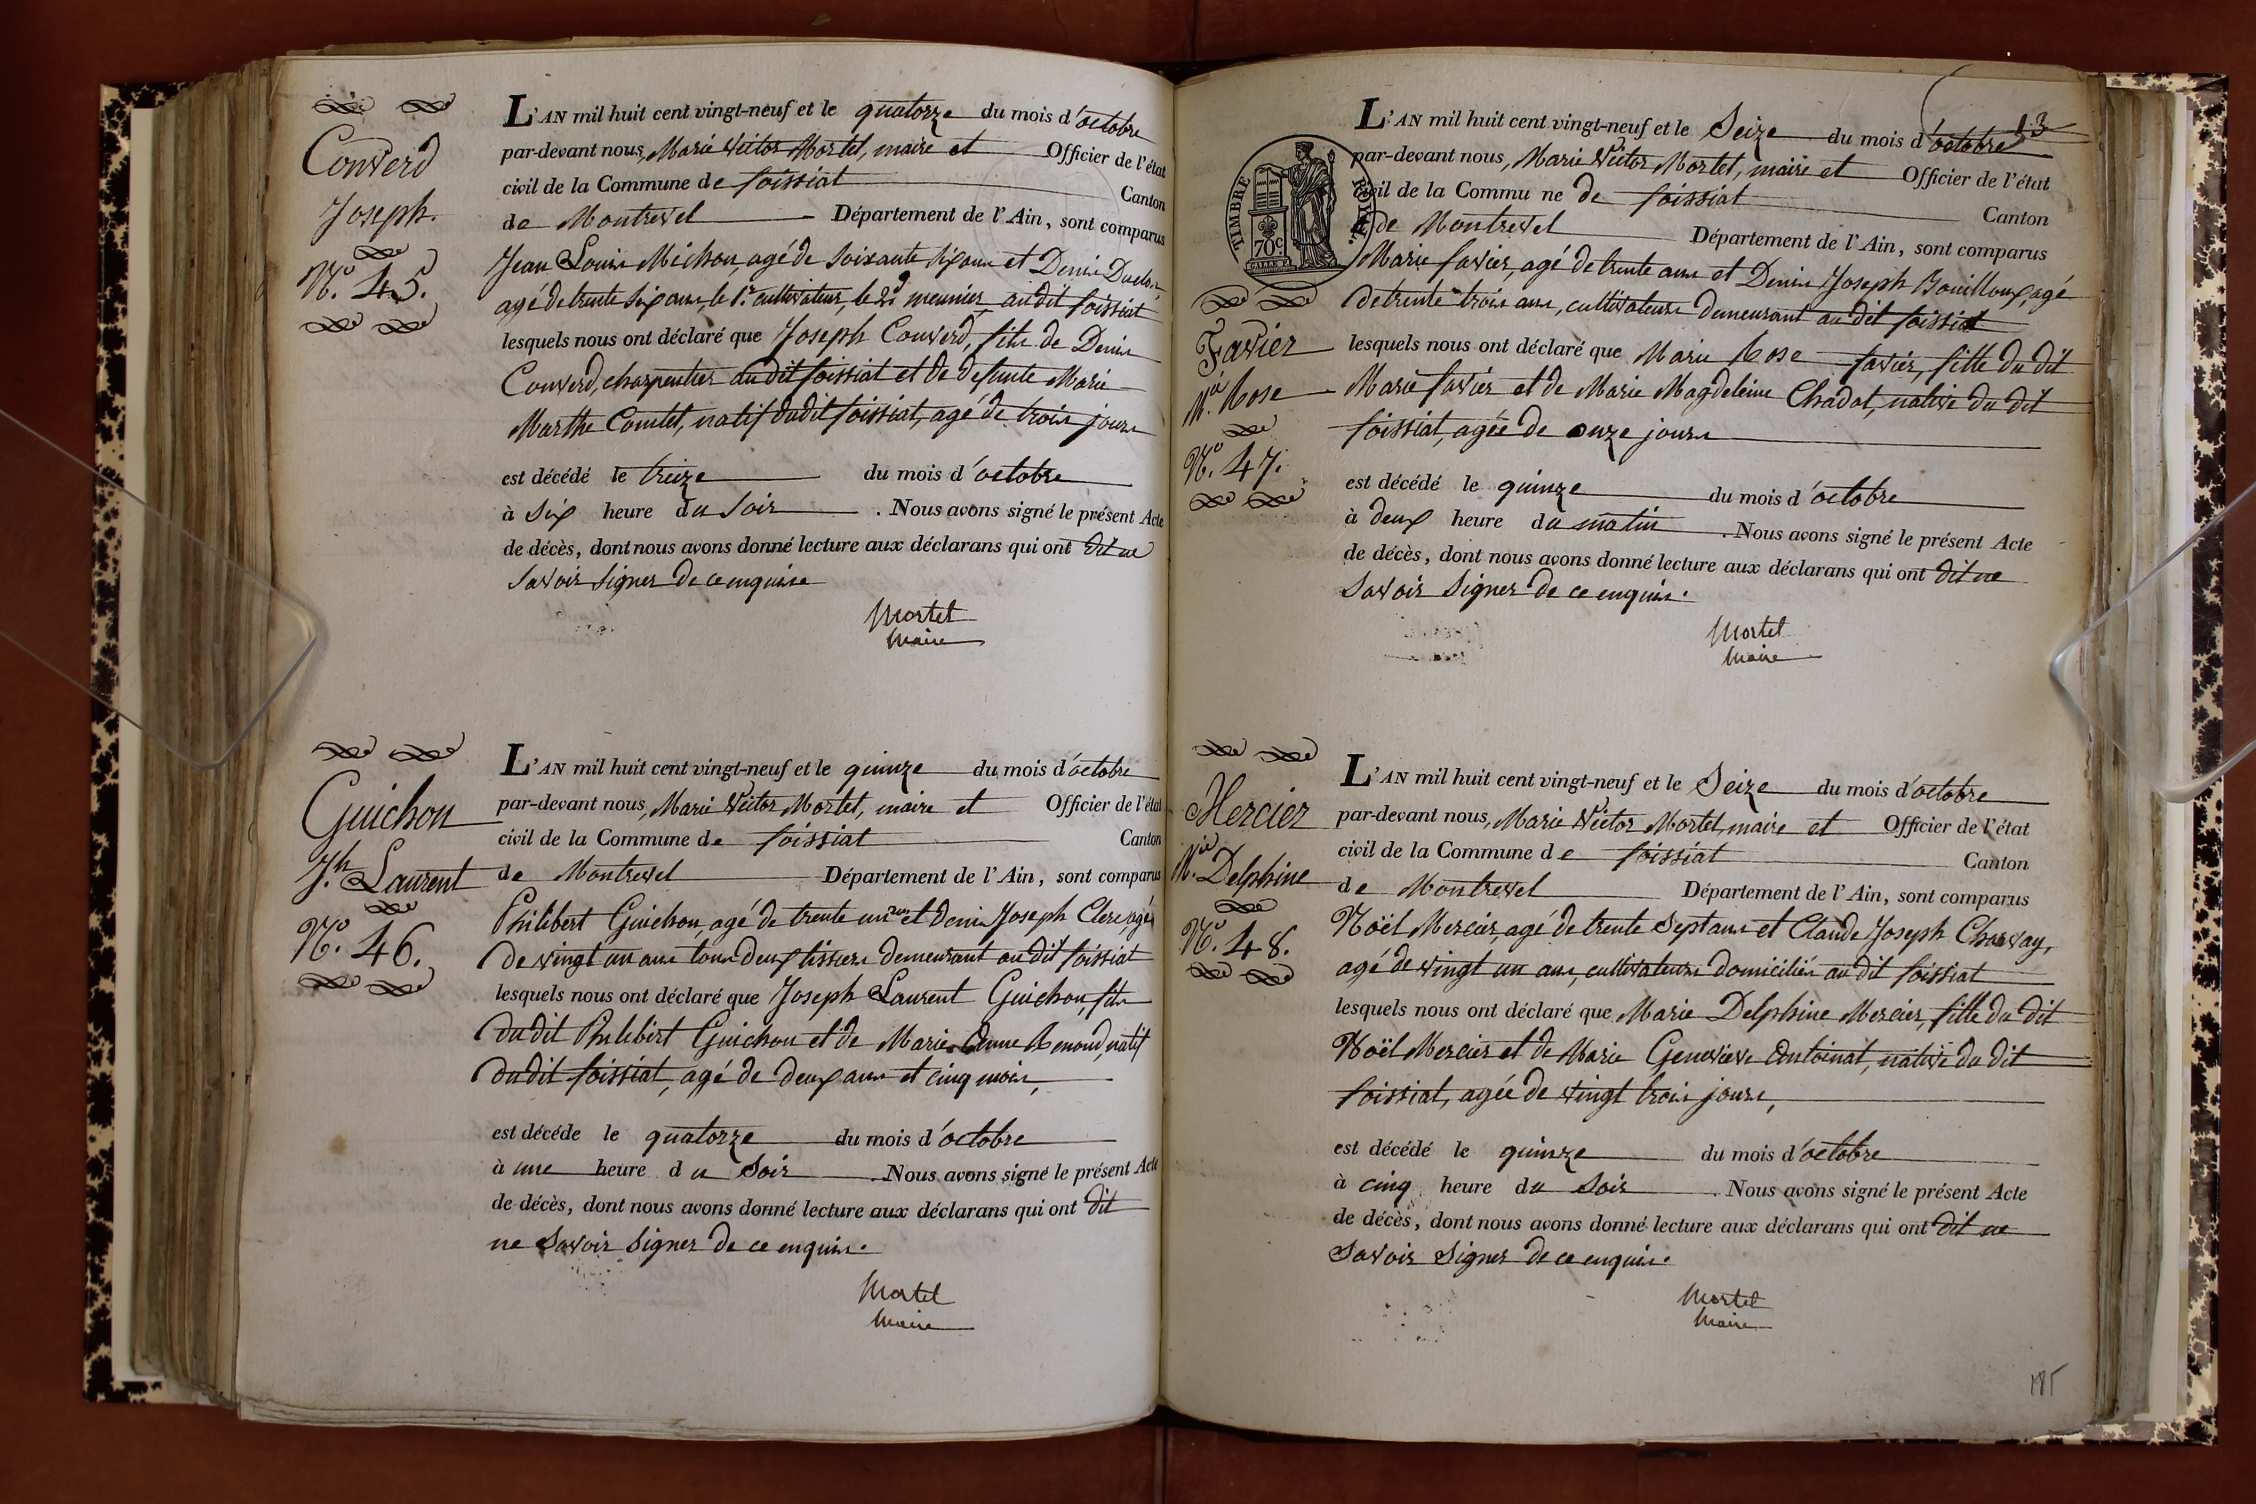 Converd
Joseph.
N.º 45.
L'AN mil huit cent vingt-neuf et le quatorze du mois d'octobre
par-devant nous, Marie Victor Mortel, maire et Officier de l'état
civil de la Commune de foissiat Canton
de Montrevel Département de l'Ain, sont comparus
Jean Louis Michon, agé de soixante six ans et Denis Duclos,
agé de trente six ans, le 1.er cultivateur, le 2.d meunier, au dit foissiat
lesquels nous ont déclaré que Joseph Converd, fils de Denis
Converd, charpentier au dit foissiat et de defunte Marie
Marthe Comtet, natif du dit foissiat, agé de trois jours
est décédé le treize du mois d'octobre
à six heure du soir. Nous avons signé le présent Acte
de décès, dont nous avons donné lecture aux déclarans qui ont dit ne
savoir signer de ce enquis
Mortel
Maire
Guichon
J.h Laurent
N.º 46.
L'AN mil huit cent vingt-neuf et le quinze du mois d'octobre
par-devant nous, Marie Victor Mortel, maire et Officier de l'état
civil de la Commune de foissiat Canton
de Montrevel Département de l'Ain, sont comparus
Philibert Guichon, agé de trente un ans et denis Joseph Clerc, agé
de vingt un ans tous deux tissiers demeurant au dit foissiat
lesquels nous ont déclaré que Joseph Laurent Guichon, fils
du dit Philibert Guichon et de Marie Anne Renoud, natif
du dit foissiat, agé de deux ans et cinq mois,
est décéde le quatorze du mois d'octobre
à une heure du soir. Nous avons signé le présent Acte
de décès, dont nous avons donné lecture aux déclarans qui ont dit
ne savoir signer de ce enquis.
Mortel
Maire
13
TIMBRE ROYAL.
70c
Favier
M.ie Rose
N.º 47.
L'AN mil huit cent vingt-neuf et le Seize du mois d'octobre
par-devant nous, Marie Victor Mortel, maire et Officier de l'état
civil de la Commu ne de foissiat Canton
de Montrevel Département de l'Ain, sont comparus
Marie favier, agé de trente ans et Denis Joseph Bouilloux, agé
de trente trois ans, cultivateurs demeurant au dit foissiat
lesquels nous ont déclaré que Marie Rose favier, fille du dit
Marie favier et de Marie Magdeleine Chadat, native du dit
foissiat, agée de onze jours
est décédé le quinze du mois d'octobre
à deux heure du matin. Nous avons signé le présent Acte
de décès, dont nous avons donné lecture aux déclarans qui ont dit ne
savoir signer de ce enquis.
Mortel
Maire
Mercier
M.ie Delphine
N.º 48.
L'AN mil huit cent vingt-neuf et le Seize du mois d'octobre
par-devant nous, Marie Victor Mortel, maire et Officier de l'état
civil de la Commune de foissiat Canton
de Montrevel Département de l'Ain, sont comparus
Noël Mercier, agé de trente sept ans et Claude Joseph Charvay,
agé de vingt un ans, cultivateurs domiciliés au dit foissiat
lesquels nous ont déclaré que Marie Delphine Mercier, fille du dit
Noël Mercier et de Marie Genevieve Antoinat, native du dit
foissiat, agée de vingt trois jours,
est décédé le quinze du mois d'octobre
à cinq heure du soir. Nous avons signé le présent Acte
de décès, dont nous avons donné lecture aux déclarans qui ont dit ne
savoir signer de ce enquis.
Mortel
Maire
185